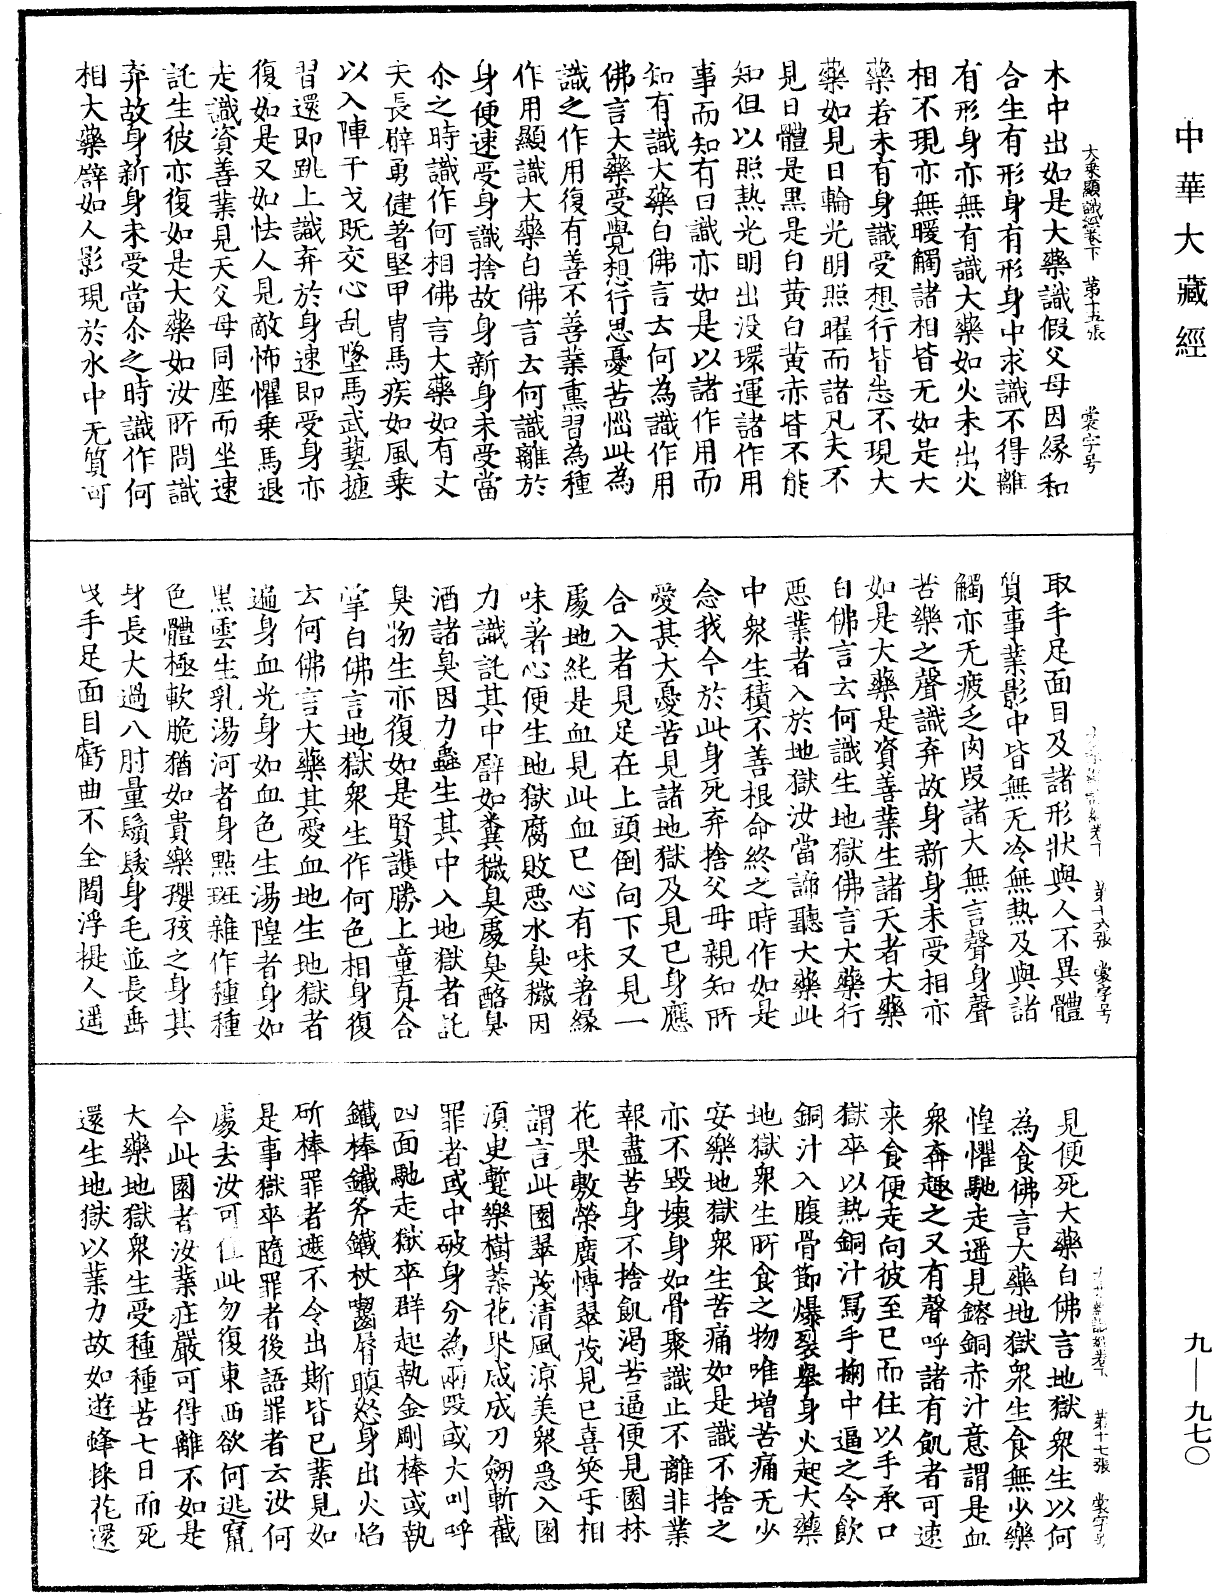 中華大藏經
大乘顯識經卷下　第十五張　裳字号
木中出如是大藥識假父母因緣和
合生有形身有形身中求識不得離
有形身亦無有識大藥如火未出火
相不現亦無暖觸諸相皆无如是大
藥若未有身識受想行皆悉不現大
藥如見日輪光明照曜而諸凡夫不
見日體是黑是白黃白黃赤皆不能
知但以照熱光明出没環運諸作用
事而知有日識亦如是以諸作用而
知有識大藥白佛言云何為識作用
佛言大藥受覺想行思憂苦惱此為
識之作用復有善不善業熏習為種
作用顯識大藥白佛言云何識離於
身便速受身識捨故身新身未受當
尒之時識作何相佛言大藥如有丈
夫長臂勇健著堅甲胄馬疾如風乘
以入陣干戈既交心乱墜馬武藝捷
習還即跳上識弃於身速即受身亦
復如是又如怯人見敵怖懼乘馬退
走識資善業見天父母同座而坐速
託生彼亦復如是大藥如汝所問識
弃故身新身未受當尒之時識作何
相大藥譬如人影現於水中无質可
第十六張　裳字号
取手足面目及諸形狀與人不異體
質事業影中皆無无冷無熱及與諸
觸亦无疲乏肉段諸大無言聲身聲
苦樂之聲識弃故身新身未受相亦
如是大藥是資善業生諸天者大藥
白佛言云何識生地獄佛言大藥行
惡業者入於地獄汝當諦聽大藥此
中衆生積不善根命終之時作如是
念我今於此身死弃捨父母親知所
愛甚大憂苦見諸地獄及見已身應
合入者見足在上頭倒向下又見一
處地純是血見此血已心有味著緣
味著心便生地獄腐敗惡水臭穢因
力識託其中譬如糞穢臭處臭酪臭
酒諸臭因力蟲生其中入地獄者託
臭物生亦復如是賢護勝上童真合
掌白佛言地獄衆生作何色相身復
云何佛言大藥其愛血地生地獄者
遍身血光身如血色生湯隍者身如
黑雲生乳湯河者身點斑雜作種種
色體極軟脆猶如貴樂孾孩之身其
身長大過八肘量鬚髮身毛並長垂
曳手足面目虧曲不全閻浮提人遥
第十七張　裳字号
見便死大藥白佛言地獄衆生以何
為食佛言大藥地獄衆生食無少樂
惶懼馳走遥見鎔銅赤汁意謂是血
衆奔趣之又有聲呼諸有飢者可速
来食便走向彼至已而住以手承口
獄卒以熱銅汁寫手掬中逼之令飲
銅汁入腹骨節爆裂舉身火起大藥
地獄衆生所食之物唯增苦痛无少
安樂地獄衆生苦痛如是識不捨之
亦不毀壞身如骨聚識止不離非業
報盡苦身不捨飢渴苦逼便見園林
花果敷榮廣博翠茂見已喜笑乎相
謂言此園翠茂清風涼美衆急入園
湏臾蹔樂樹葉花果咸成刀劔斬截
罪者或中破身分為兩段或大叫呼
四面馳走獄卒群起執金剛棒或執
鐵棒鐵斧鐵杖齧脣瞋怒身出火焰
斫棒罪者遮不令出斯皆已業見如
是事獄卒隨罪者後語罪者云汝何
處去汝可住此勿復東西欲何逃竄
今此園者汝業庄嚴可得離不如是
大藥地獄衆生受種種苦七日而死
還生地獄以業力故如遊蜂採花還
九—九七〇